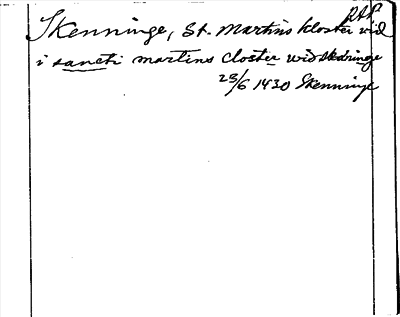 RAP
Skenninge, St. Martins kloster vid
i sancti martins closter widh Skædninge
23/6 1430 Skenninge